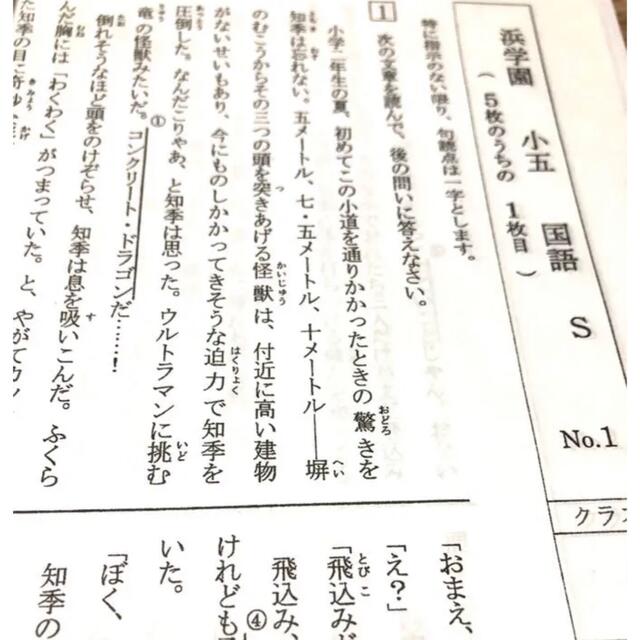 浜学園 小五 国語 S No.1
（5枚のうちの 1枚目）
クラ
特に指示のない限り、句読点は一字とします。
1 次の文章を読んで、後の問いに答えなさい。
小学二年生の夏、初めてこの小道を通りかかったときの驚きを
知季は忘れない。五メートル、七・五メートル、十メートル――塀
のむこうからその三つの頭を突きあげる怪獣は、付近に高い建物
がないせいもあり、今にものしかかってきそうな迫力で知季を
圧倒した。なんだこりゃあ、と知季は思った。ウルトラマンに挑む
竜の怪獣みたいだ。①コンクリート・ドラゴンだ……！
倒れそうなほど頭をのけぞらせ、知季は息を吸いこんだ。ふくら
んだ胸には「わくわく」がつまっていた。と、やがて
た知季の目に奇妙
「おまえ、
「え？」
「飛込み
飛込み、
④
けれども
いた。
「ぼく、
知季の